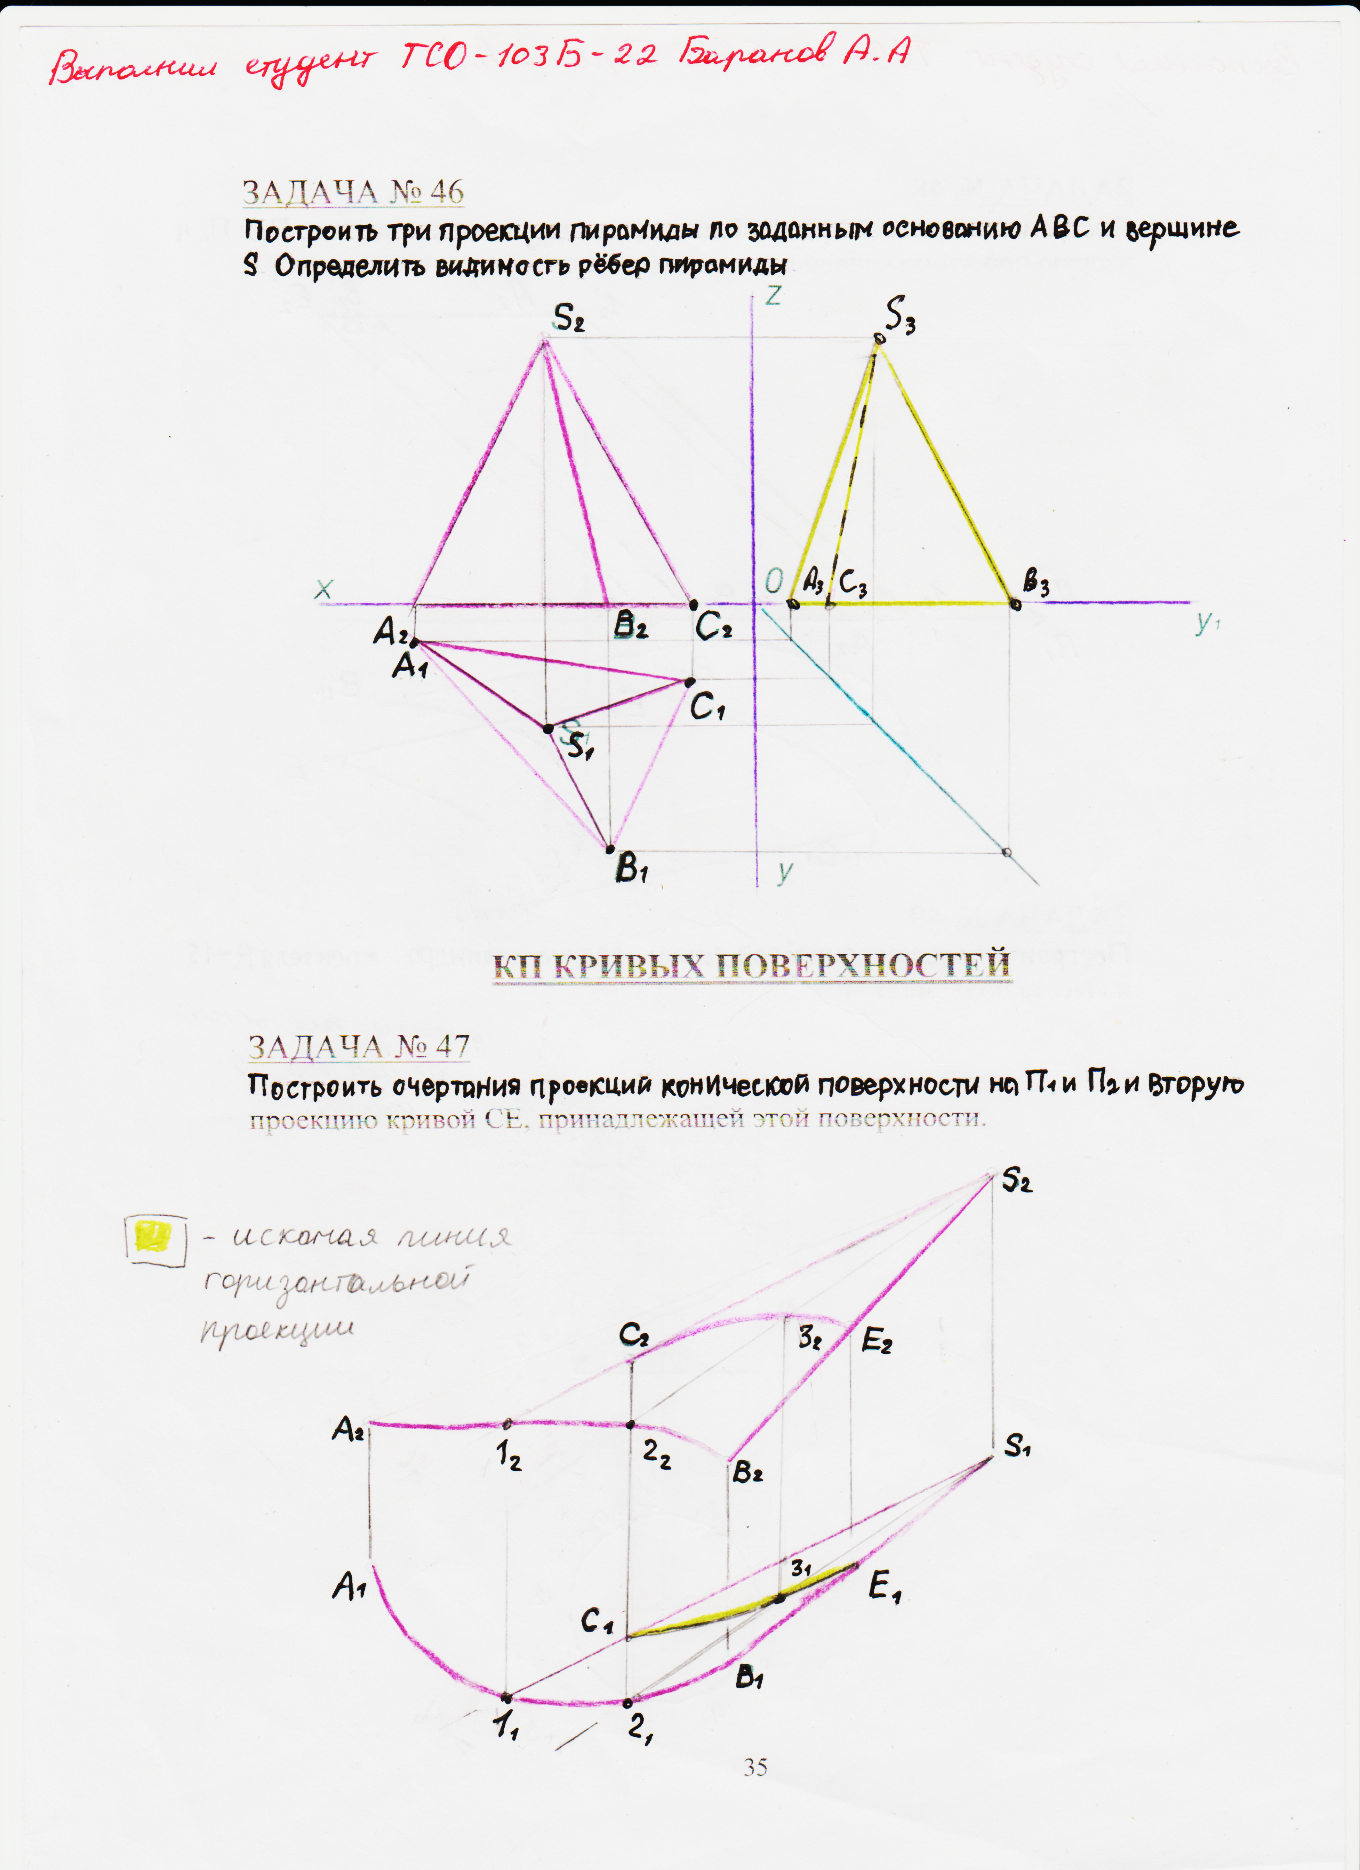 Выполнил студент ТСО-103Б-22 Баранов А.А
ЗАДАЧА № 46
Построить три проекции пирамиды по заданным основанию АВС и вершине
S Определить видимость рёбер пирамиды
Z
S₂
S₃
X
O
A₃
C₃
B₃
A₂
B₂
C₂
y₁
A₁
C₁
S₁
B₁
y
КП КРИВЫХ ПОВЕРХНОСТЕЙ
ЗАДАЧА № 47
Построить очертания проекций конической поверхности на П₁ и П₂ и вторую
проекцию кривой СЕ, принадлежащей этой поверхности.
S₂
- искомая линия
горизонтальной
проекции
C₂
3₂
E₂
A₂
1₂
2₂
B₂
S₁
A₁
3₁
E₁
C₁
B₁
1₁
2₁
35